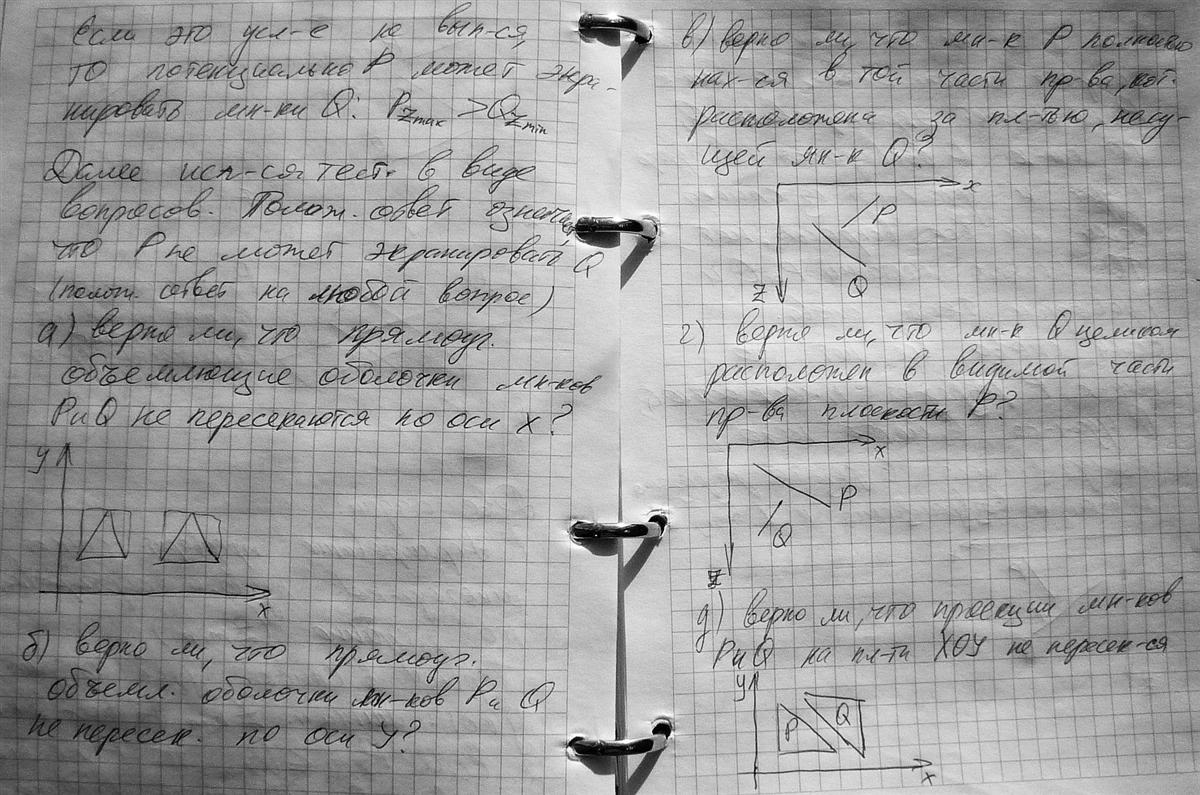 Если это усл-е не вып-ся,
то потенциально P может экра-
нировать мн-ки Q: Pzmax > Qzmin
Далее исп-ся тест в виде
вопросов. Полож. ответ означает
что P не может экранировать Q
(полож. ответ на любой вопрос)
а) верно ли, что прямоуг.
объемлющие оболочки мн-ков
P и Q не пересекаются по оси X?
y
x
б) верно ли, что прямоуг.
объемл. оболочки мн-ков P и Q
не пересек. по оси У?
в) верно ли, что мн-к P полностью
нах-ся в той части пр-ва, кот.
расположена за пл-тью, несу-
щей мн-к Q?
x
P
Q
z
г) верно ли, что мн-к Q целиком
расположен в видимой части
пр-ва плоскости P?
x
P
Q
z
д) верно ли, что проекции мн-ков
P и Q на пл-ти XOY не пересек-ся
y
P
Q
x